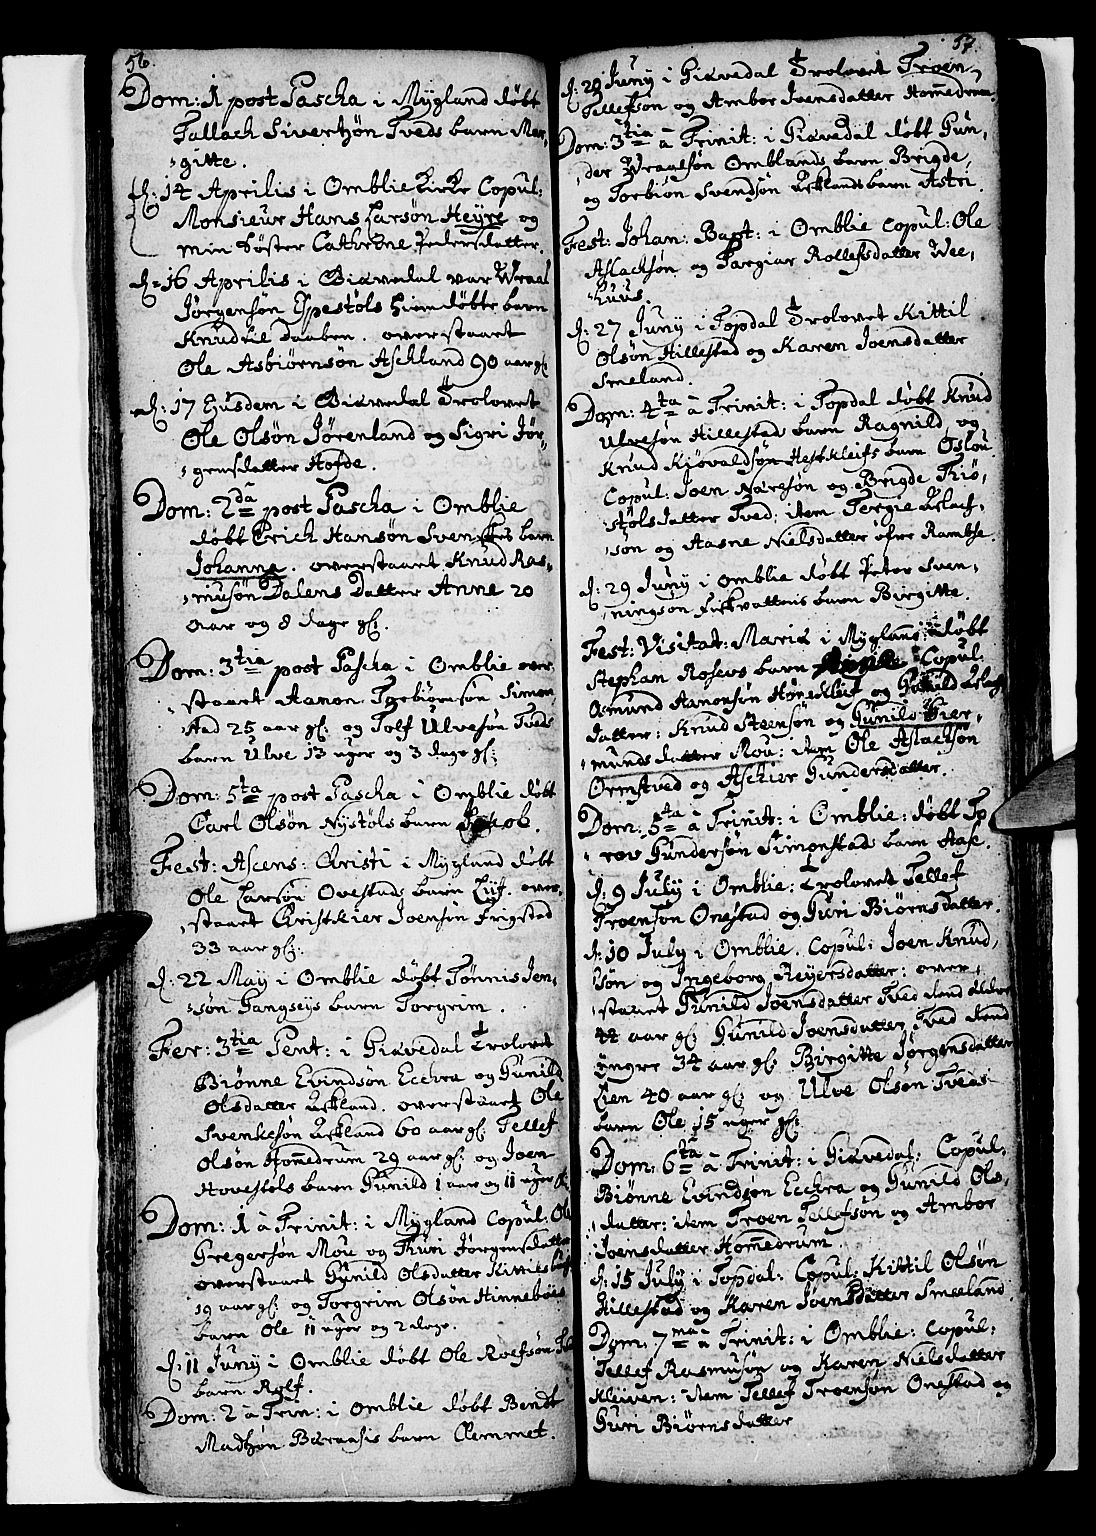 56.
Dom: 1 post Pascha i Mygland døbt
Tallach Sivertzøn Tveds barn Mar-
gitte.
d: 14 Aprilis i Omblie Kirke Copul:
Monsieur Hans Larsøn Heyre og
min Søster Cathrine Pedersdatter.
d: 16 Aprilis i Giævedal var Wraal
Jørgensøn Espestøls hiemdøbte barn
Knud til Daaben. overstaaet
Ole Asbiørnsøn Aschland 90 aar gl:
d: 17 Ejusdem i Giævedal Trolovet
Ole Olsøn Jørenland og Sigri Jør-
gensdatter Hofde.
Dom: 2da post Pascha i Omblie
døbt Erich Hansøn Svenskes barn
Johanna. overstaaet Knud Ras-
musøn Dalens Datter Anne 20
aar og 8 dage gl:
Dom: 3tia post Pascha i Omblie over-
staaet Aanon Torbiørnsøn Simon-
stad 25 aar gl: og Tolf Ulvesøn Tveds
barn Ulve 13 uger og 3 dage gl:
Dom: 5ta post Pascha i Omblie døbt
Carl Olsøn Nystøls barn Jakob.
Fest: Ascens: Christi i Mygland døbt
Ole Larsøn Ovestads barn Liif. over-
staaet Christhier Joensøn Frigstad
33 aar gl:
d: 22 May i Omblie døbt Tønnis Jen-
søn Gangseys barn Torgrim.
Fer: 3tia Pent: i Giævedal Trolovet
Biønne Evindsøn Eechra og Gunild
Olsdatter Askland. overstaaet Ole
Svenkesøn Askland 60 aar gl: Tellef
Olsøn Hommedrum 29 aar gl: og Joen
Hovestøls barn Gunild 1 aar og 11 uger
Dom: 1 à Trinit: i Mygland Copul: Ole
Gregersøn Mou og Guri Jørgensdatter
overstaaet Gunild Olsdatter Kittils
19 aar gl: og Torgrim Olsøn Hinnebøes
barn Ole 11 uger og 2 dage.
d: 11 Juny i Omblie døbt Ole Rolfsøn
barn Rolf.
Dom: 2 à Trin: i Omblie døbt Bendt
Madtzøn Baraasis barn Clemmet.
57.
d: 20 Juny i Giævedal Trolovet Troen
Tellefsøn og Ambor Joensdatter Hommedrum.
Dom: 3tia à Trinit: i Giævedal døbt Gun-
der Wraalsøn Omblands barn Brigde,
og Torbiøn Svendsøn Asklands barn Astri.
Fest: Johan: Bapt: i Omblie Copul: Ole
Aslachsøn og Targier Rollefsdatter Wee-
huus.
d: 27 Juny i Topdal Trolovet Kittil
Olsøn Hillestad og Karen Joensdatter
Smeland.
Dom: 4ta à Trinit: i Topdal døbt Knud
Ulvesøn Hillestad barn Ragnild, og
Knud Kiøvaldsøn Hestkleifs barn Oslou.
Copul: Joen Naresøn og Brigde Kiø-
støls datter Tved; item Tergie Aslach-
søn og Aasne Nielsdatter øfre Ramse.
d: 29 Juny i Omblie døbt Peter Sven-
ningsøn Fiskvattens barn Birgitte.
Fest: Visitat: Mariæ i Mygland døbt
Stephan Rosevs barn Copul:
Osmund Aanonsøn Hønekleif og Gunild Aslach-
datter: Knud Steensøn og Gunild Gier-
munds datter Mou: item Ole Aslachsøn
Ormstved og Aschier Gundersdatter.
Dom: 5ta à Trinit: i Omblie: døbt To-
rov Gundersøn Simonstads barn Aase.
d: 9 July i Omblie: Trolovet Tellef
Troensøn Onestad og Guri Biørnsdatter.
d: 10 July i Omblie. Copul: Joen Knud-
søn og Ingeborg Reyersdatter: over-
staaet Gunild Joensdatter Tved
44 aar gl: Gunild Joensdatter Tved
yngre 34 aar gl: Birgitte Jørgensdatter
Lien 40 aar gl: og Ulve Olsøn Tveds
barn Ole 15 uger gl:
Dom: 6ta à Trinit: i Giævedal: Copul:
Biønne Evindsøn Eechra og Gunild Ols-
datter: item Troen Tellefsøn og Ambor
Joensdatter Hommedrum.
d: 15 July i Topdal: Copul: Kittil Olsøn
Hillestad og Karen Joensdatter Smeeland.
Dom: 7ma à Trinit: i Omblie: Copul:
Tellef Rasmusøn og Karen Nielsdatter
Kleiven: item Tellef Troensøn Onestad og
Guri Biørnsdatter